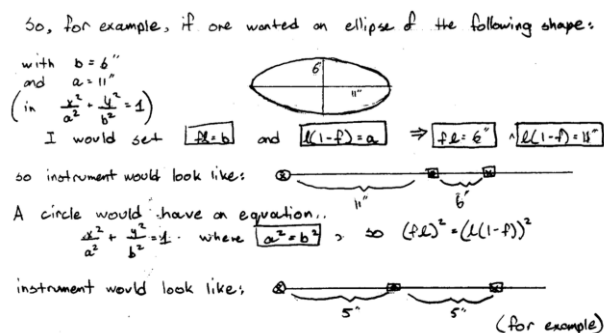 So, for example, if one wanted an ellipse of the following shape:
with b = 6"
and a = 11"
(in x²/a² + y²/b² = 1)
6"
11"
I would set fl = b and l(1-f) = a ⇒ fl = 6" ∧ l(1-f) = 11"
so instrument would look like:
11" 6"
A circle would have an equation..
x²/a² + y²/b² = 1. where a² = b², so (fl)² = (l(1-f))²
instrument would look like:
5" 5"
(for example)